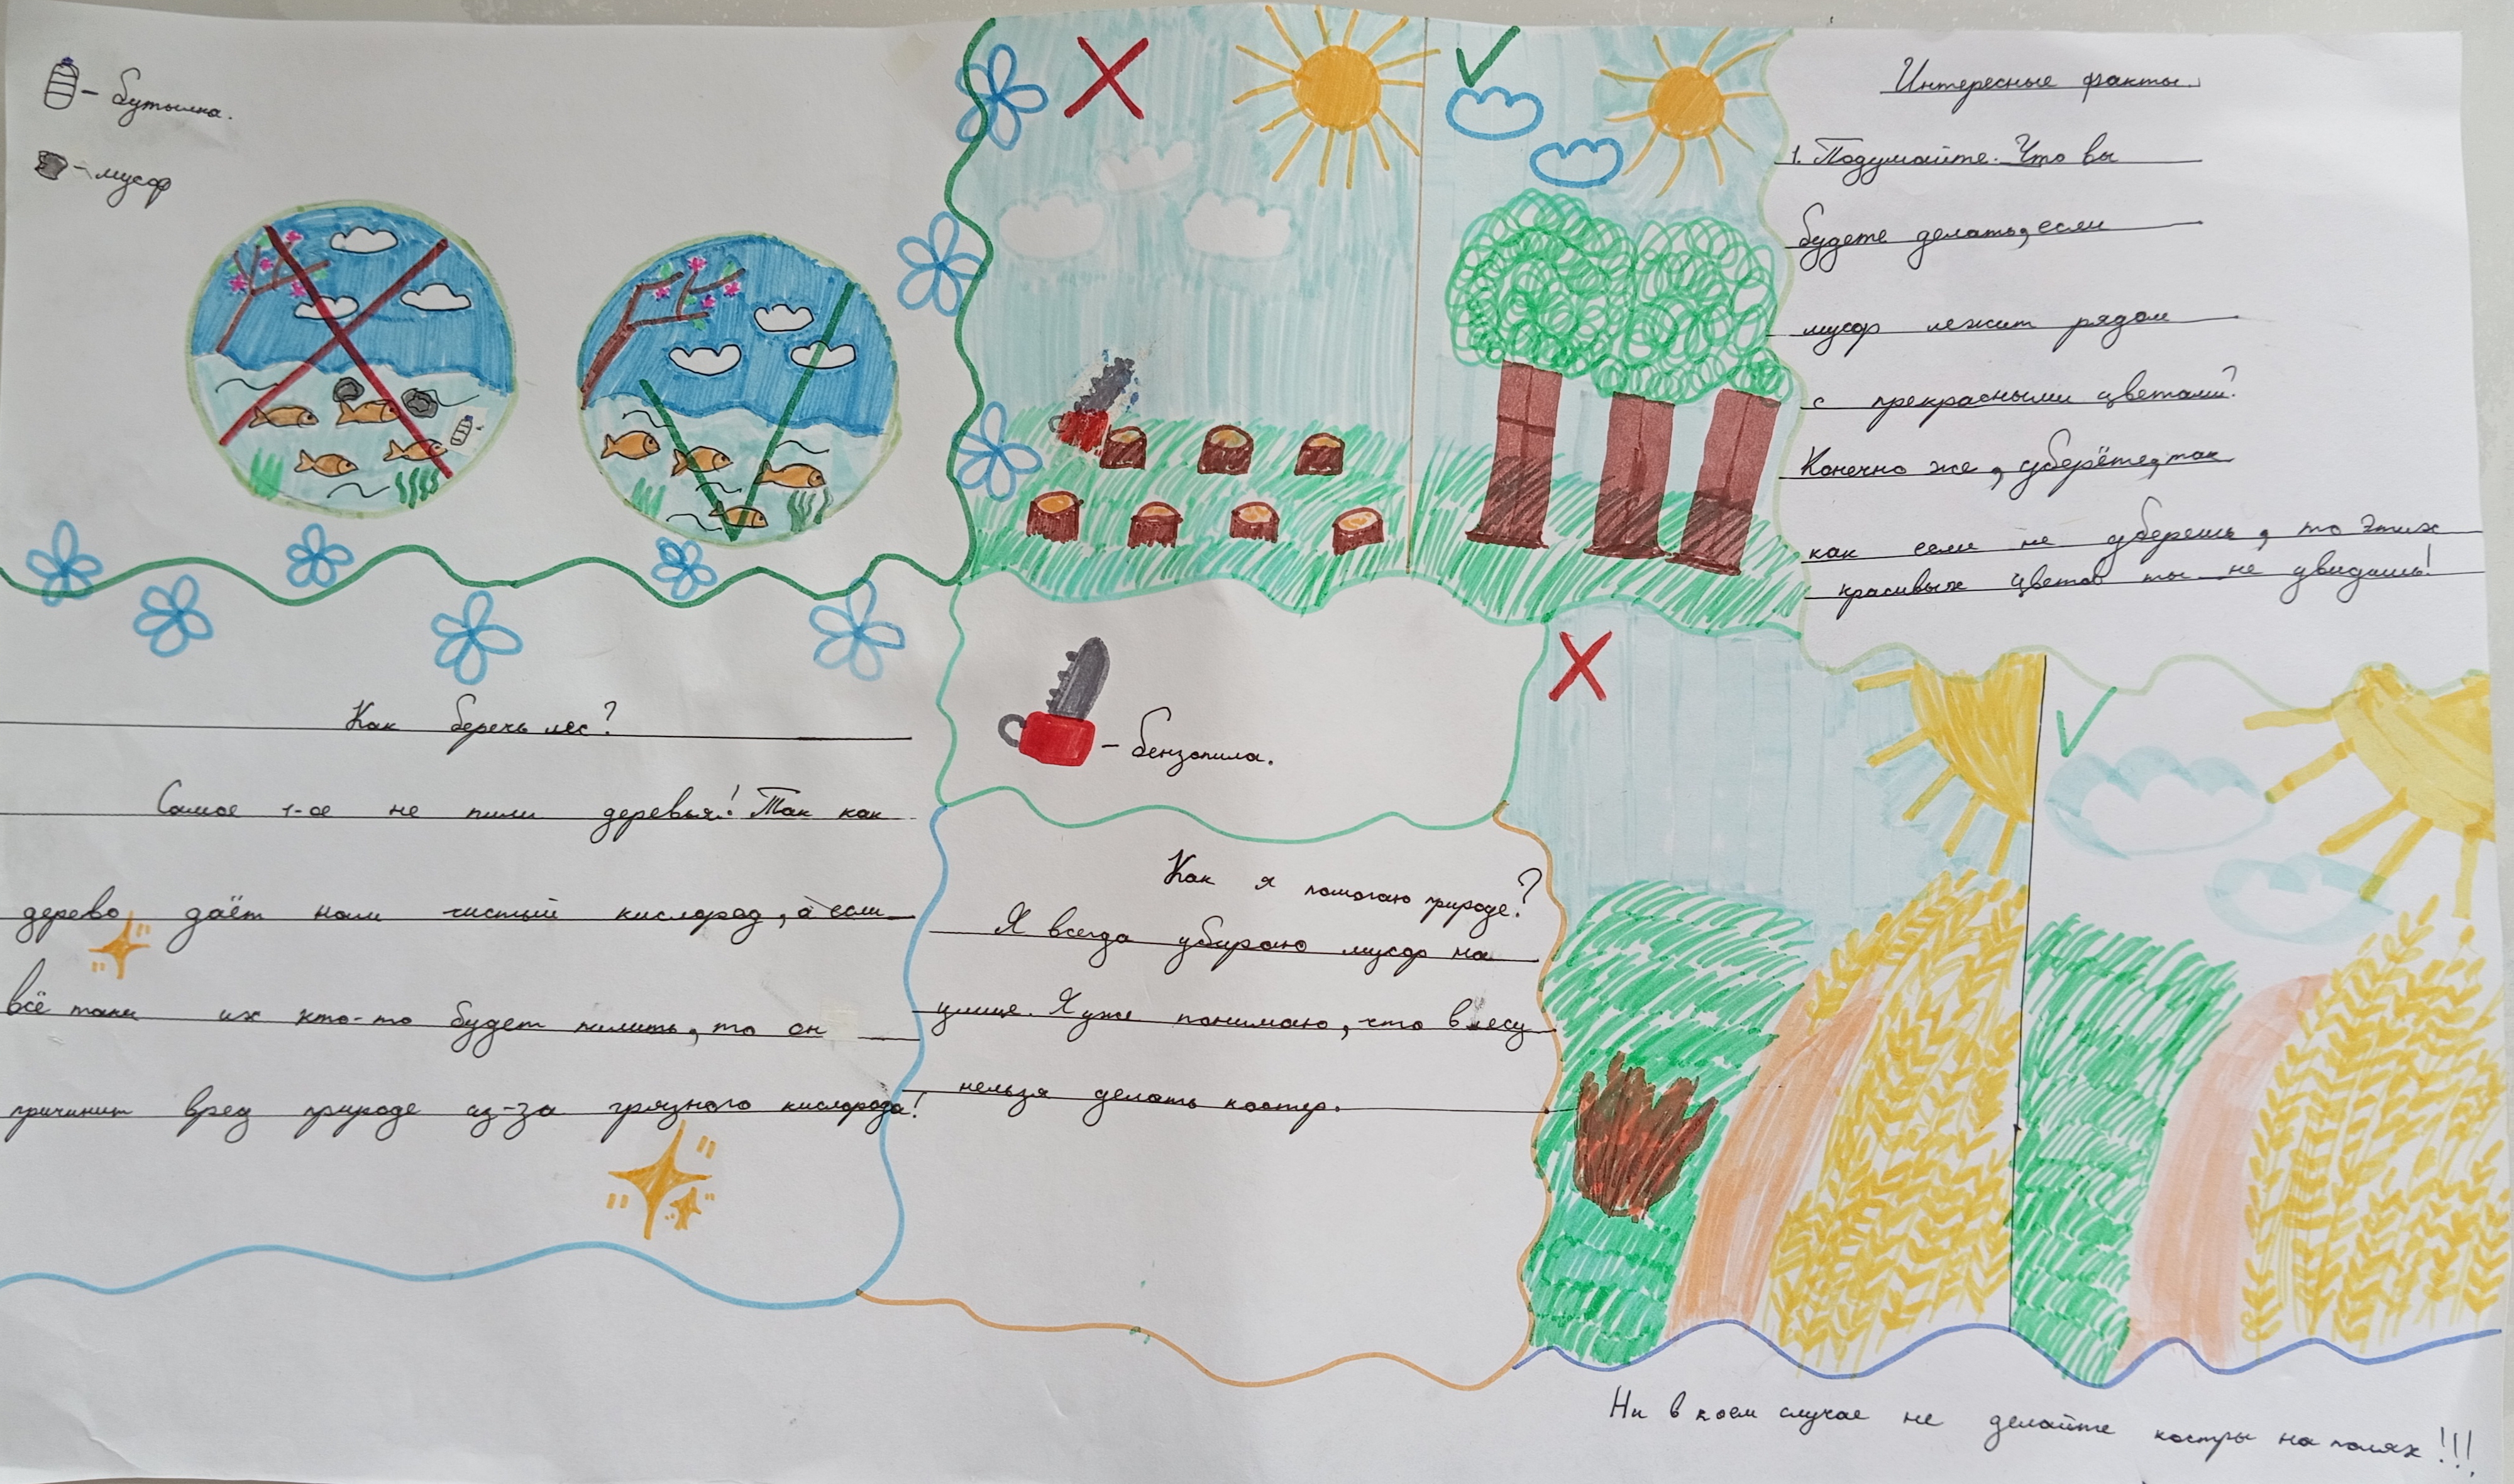 - бутылка.
- мусор
Интересные факты.
1. Подумайте. Что вы
будете делать, если
мусор лежит рядом
с прекрасными цветами?
Конечно же, уберёте, так
как если не уберешь, то этих
красивых цветов ты не увидишь!
Как беречь лес?
Самое 1-ое не пили деревья! Так как
дерево даёт нам чистый кислород, а если
всё таки их кто-то будет пилить, то он
причинит вред природе из-за грязного кислорода!
- бензопила.
Как я помогаю природе?
Я всегда убираю мусор на
улице. Я уже понимаю, что в лесу
нельзя делать костер.
Ни в коем случае не делайте костры на полях!!!